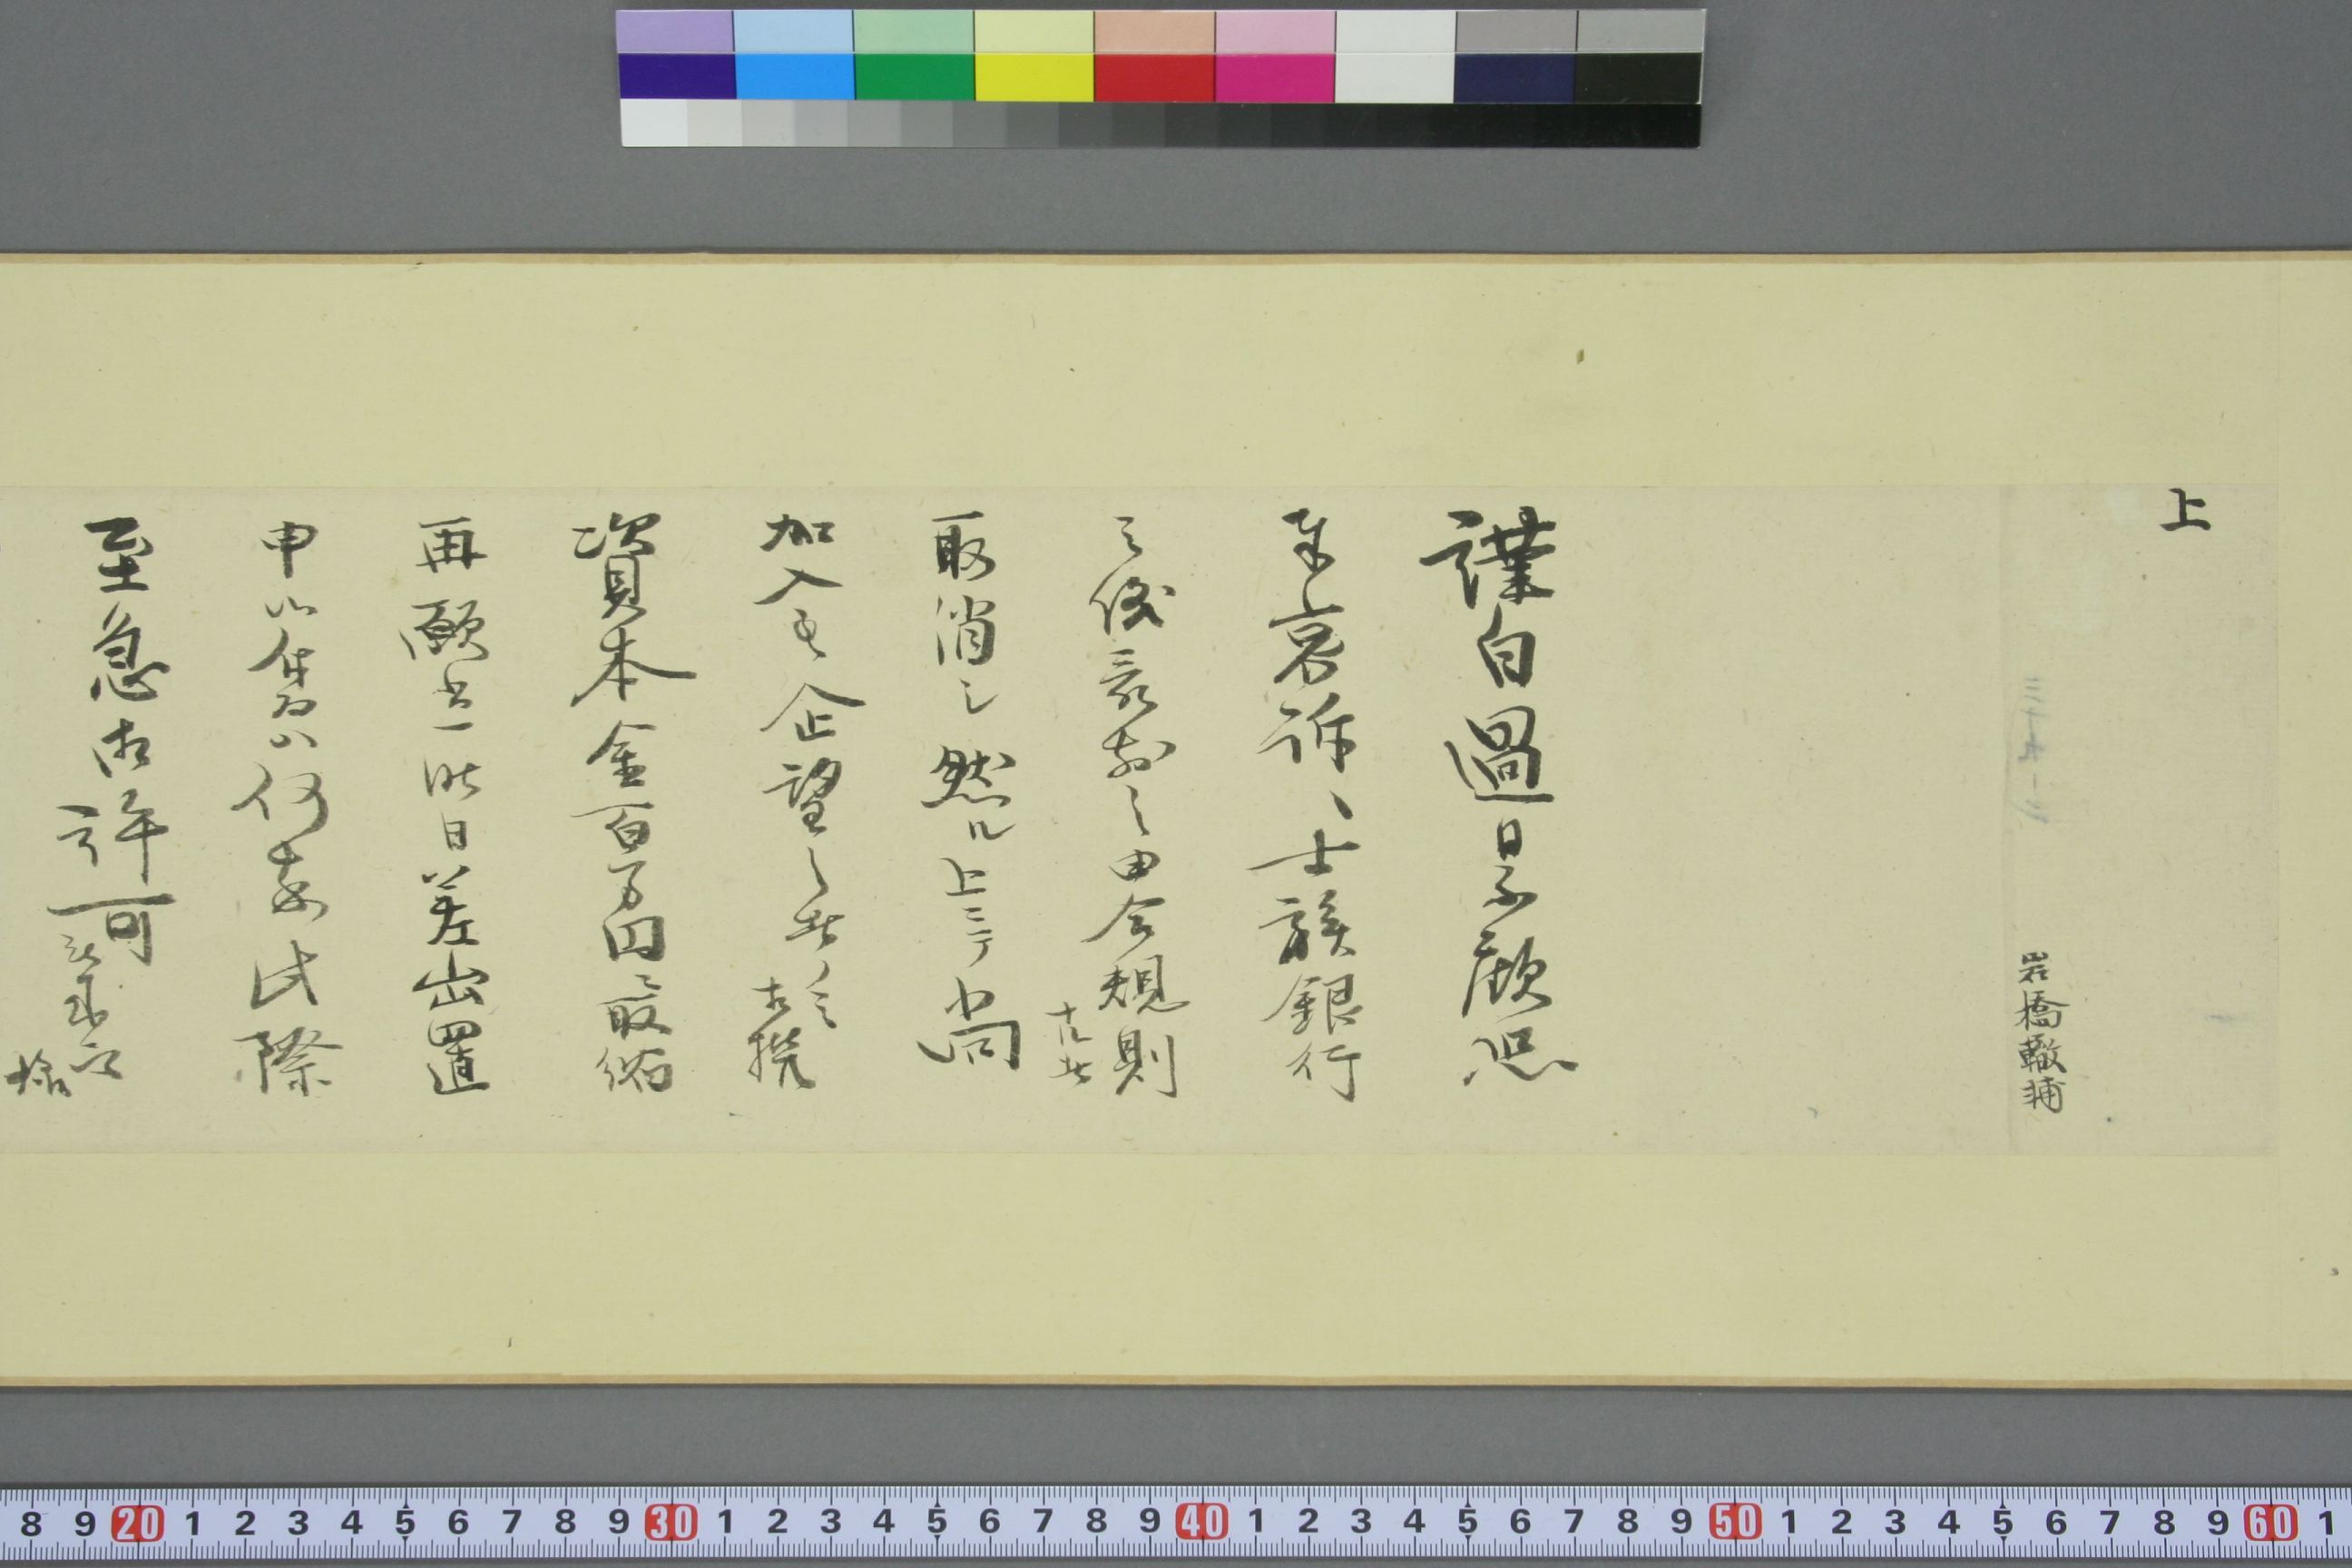 上
岩橋轍輔
謹白過日不顧恐
奉哀訴、士族銀行
之儀ハ兼而之申合規則
取消シ然ル上ニテ尚
加入も企望之者
資本金百万円取縮
再願書一昨日差出置
申候付而ハ何卒此際
至急御許可
8 9 20 1 2 3 4 5 6 7 8 9 30 1 2 3 4 5 6 7 8 9 40 1 2 3 4 5 6 7 8 9 50 1 2 3 4 5 6 7 8 9 60 1